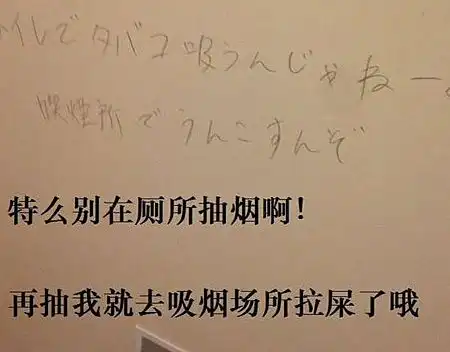 イレでタバコ吸うんじゃねー
喫煙所でうんこすんぞ
特么别在厕所抽烟啊！
再抽我就去吸烟场所拉屎了哦